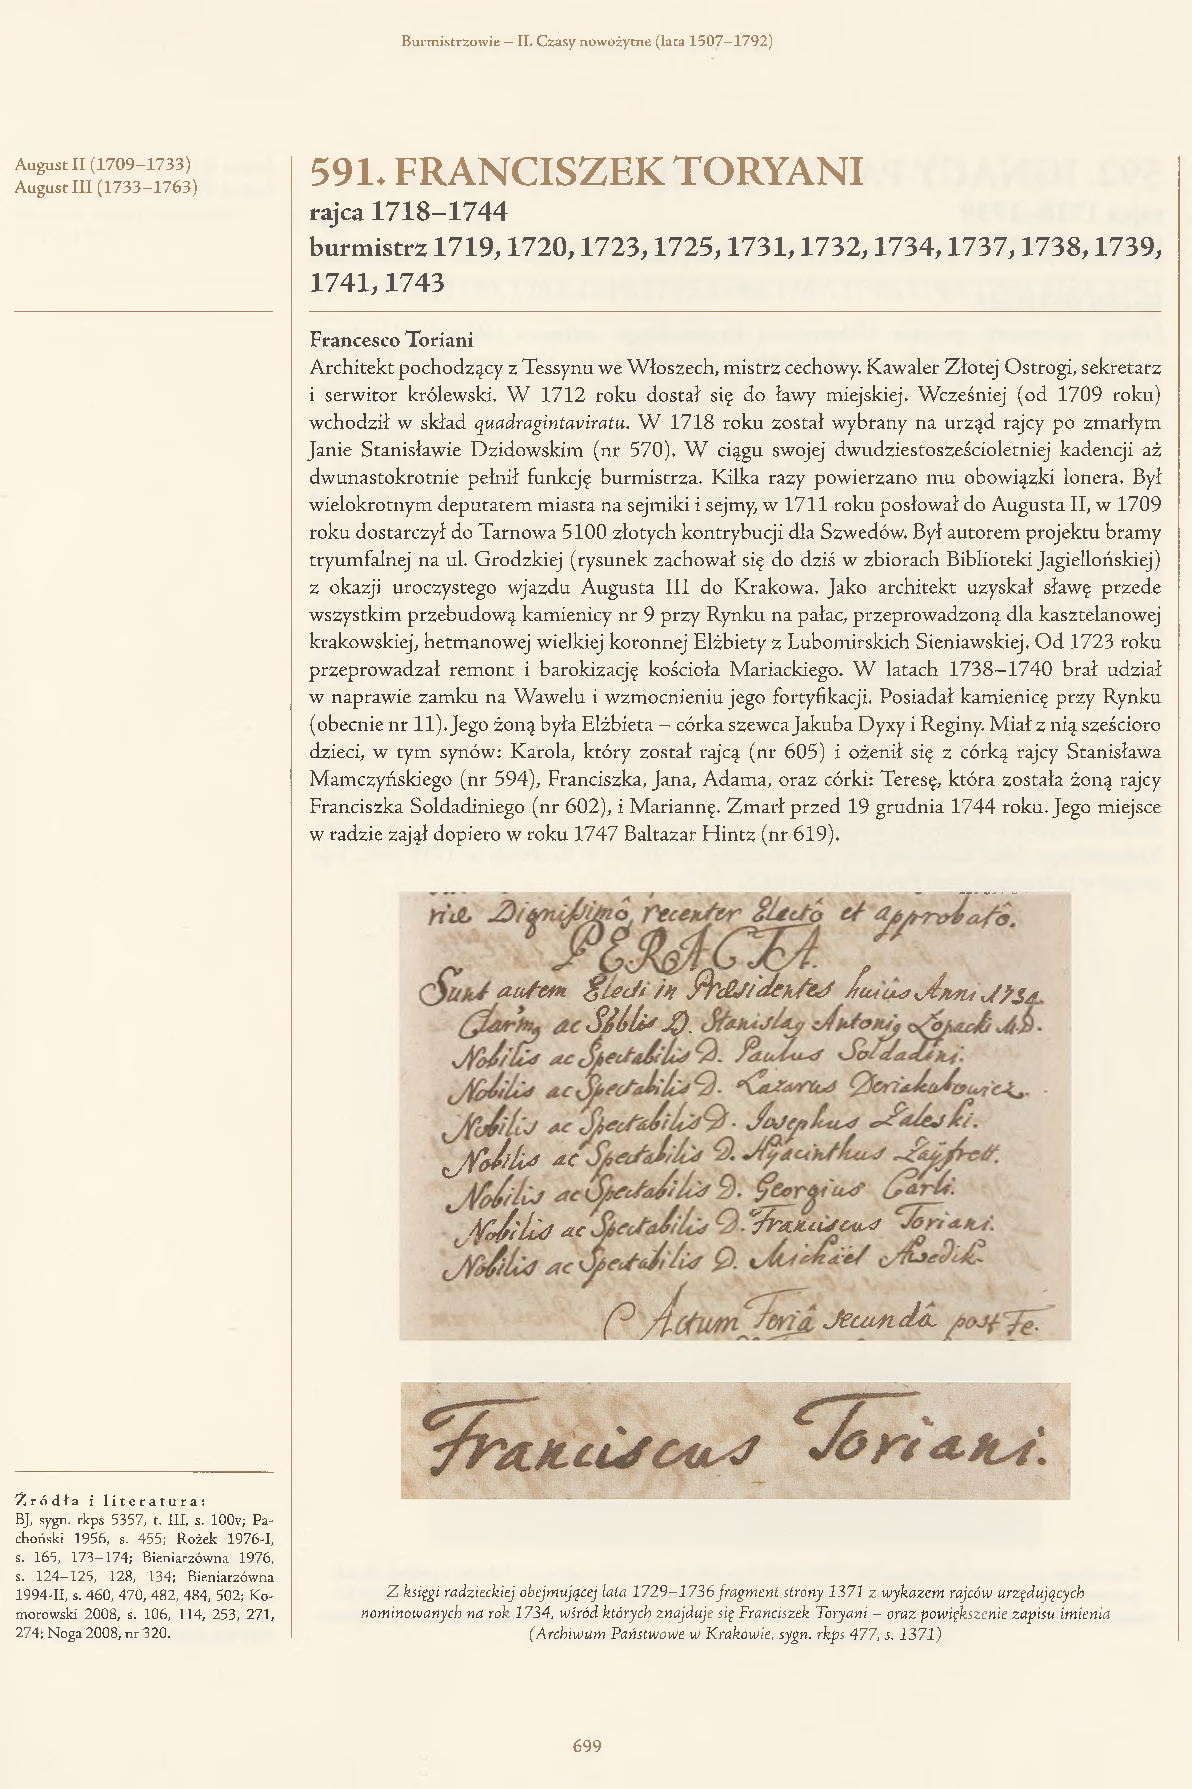 Burmistrzowie – II. Czasy nowożytne (lata 1507–1792)
August II (1709–1733)
August III (1733–1763)
591. FRANCISZEK TORYANI
rajca 1718–1744
burmistrz 1719, 1720, 1723, 1725, 1731, 1732, 1734, 1737, 1738, 1739,
1741, 1743
Francesco Toriani
Architekt pochodzący z Tessynu we Włoszech, mistrz cechowy. Kawaler Złotej Ostrogi, sekretarz
i serwitor królewski. W 1712 roku dostał się do ławy miejskiej. Wcześniej (od 1709 roku)
wchodził w skład quadragintaviratu. W 1718 roku został wybrany na urząd rajcy po zmarłym
Janie Stanisławie Dzidowskim (nr 570). W ciągu swojej dwudziestosześcioletniej kadencji aż
dwunastokrotnie pełnił funkcję burmistrza. Kilka razy powierzano mu obowiązki lonera. Był
wielokrotnym deputatem miasta na sejmiki i sejmy, w 1711 roku posłował do Augusta II, w 1709
roku dostarczył do Tarnowa 5100 złotych kontrybucji dla Szwedów. Był autorem projektu bramy
tryumfalnej na ul. Grodzkiej (rysunek zachował się do dziś w zbiorach Biblioteki Jagiellońskiej)
z okazji uroczystego wjazdu Augusta III do Krakowa. Jako architekt uzyskał sławę przede
wszystkim przebudową kamienicy nr 9 przy Rynku na pałac, przeprowadzoną dla kasztelanowej
krakowskiej, hetmanowej wielkiej koronnej Elżbiety z Lubomirskich Sieniawskiej. Od 1723 roku
przeprowadzał remont i barokizację kościoła Mariackiego. W latach 1738–1740 brał udział
w naprawie zamku na Wawelu i wzmocnieniu jego fortyfikacji. Posiadał kamienicę przy Rynku
(obecnie nr 11). Jego żoną była Elżbieta – córka szewca Jakuba Dyxy i Reginy. Miał z nią sześcioro
dzieci, w tym synów: Karola, który został rajcą (nr 605) i ożenił się z córką rajcy Stanisława
Mamczyńskiego (nr 594), Franciszka, Jana, Adama, oraz córki: Teresę, która została żoną rajcy
Franciszka Soldadiniego (nr 602), i Mariannę. Zmarł przed 19 grudnia 1744 roku. Jego miejsce
w radzie zajął dopiero w roku 1747 Baltazar Hintz (nr 619).
Dignissimô, recenter Electô et approbatô.
PERACTA.
Sunt autem Electi in Præsidentes huius Anni 1734.
ac D. Stanislaq Antoniq Łopacki M.D.
Nobilis ac Spectabilis D. Paulus Soldadini.
Nobilis ac Spectabilis D. Lazarus Deriakubowicz.
Nobilis ac Spectabilis D. Josephus Zaleski.
Nobilis ac Spectabilis D. Hyacinthus Zaÿfrett.
Nobilis ac Spectabilis D. Georgius Carli.
Nobilis ac Spectabilis D. Franciscus Toriani.
Nobilis ac Spectabilis D. Michaël Awedik.
Actum Feriâ secundâ post Fe-
Franciscus Toriani.
Źródła i literatura:
BJ, sygn. rkps 5357, t. III, s. 100v; Pa-
choński 1956, s. 455; Rożek 1976-I,
s. 165, 173–174; Bieniarzówna 1976,
s. 124–125, 128, 134; Bieniarzówna
1994-II, s. 460, 470, 482, 484, 502; Ko-
morowski 2008, s. 106, 114, 253, 271,
274; Noga 2008, nr 320.
Z księgi radzieckiej obejmującej lata 1729–1736 fragment strony 1371 z wykazem rajców urzędujących
nominowanych na rok 1734, wśród których znajduje się Franciszek Toryani – oraz powiększenie zapisu imienia
(Archiwum Państwowe w Krakowie, sygn. rkps 477, s. 1371)
699